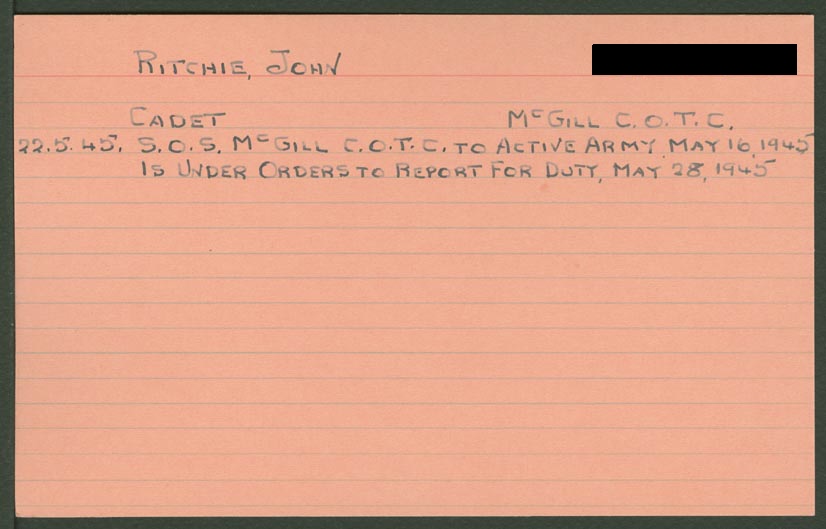 Ritchie, John
Cadet McGill C.O.T.C.
22.5.45. S.O.S. McGill C.O.T.C. to Active Army May 16, 1945
Is Under Orders to Report For Duty, May 28, 1945